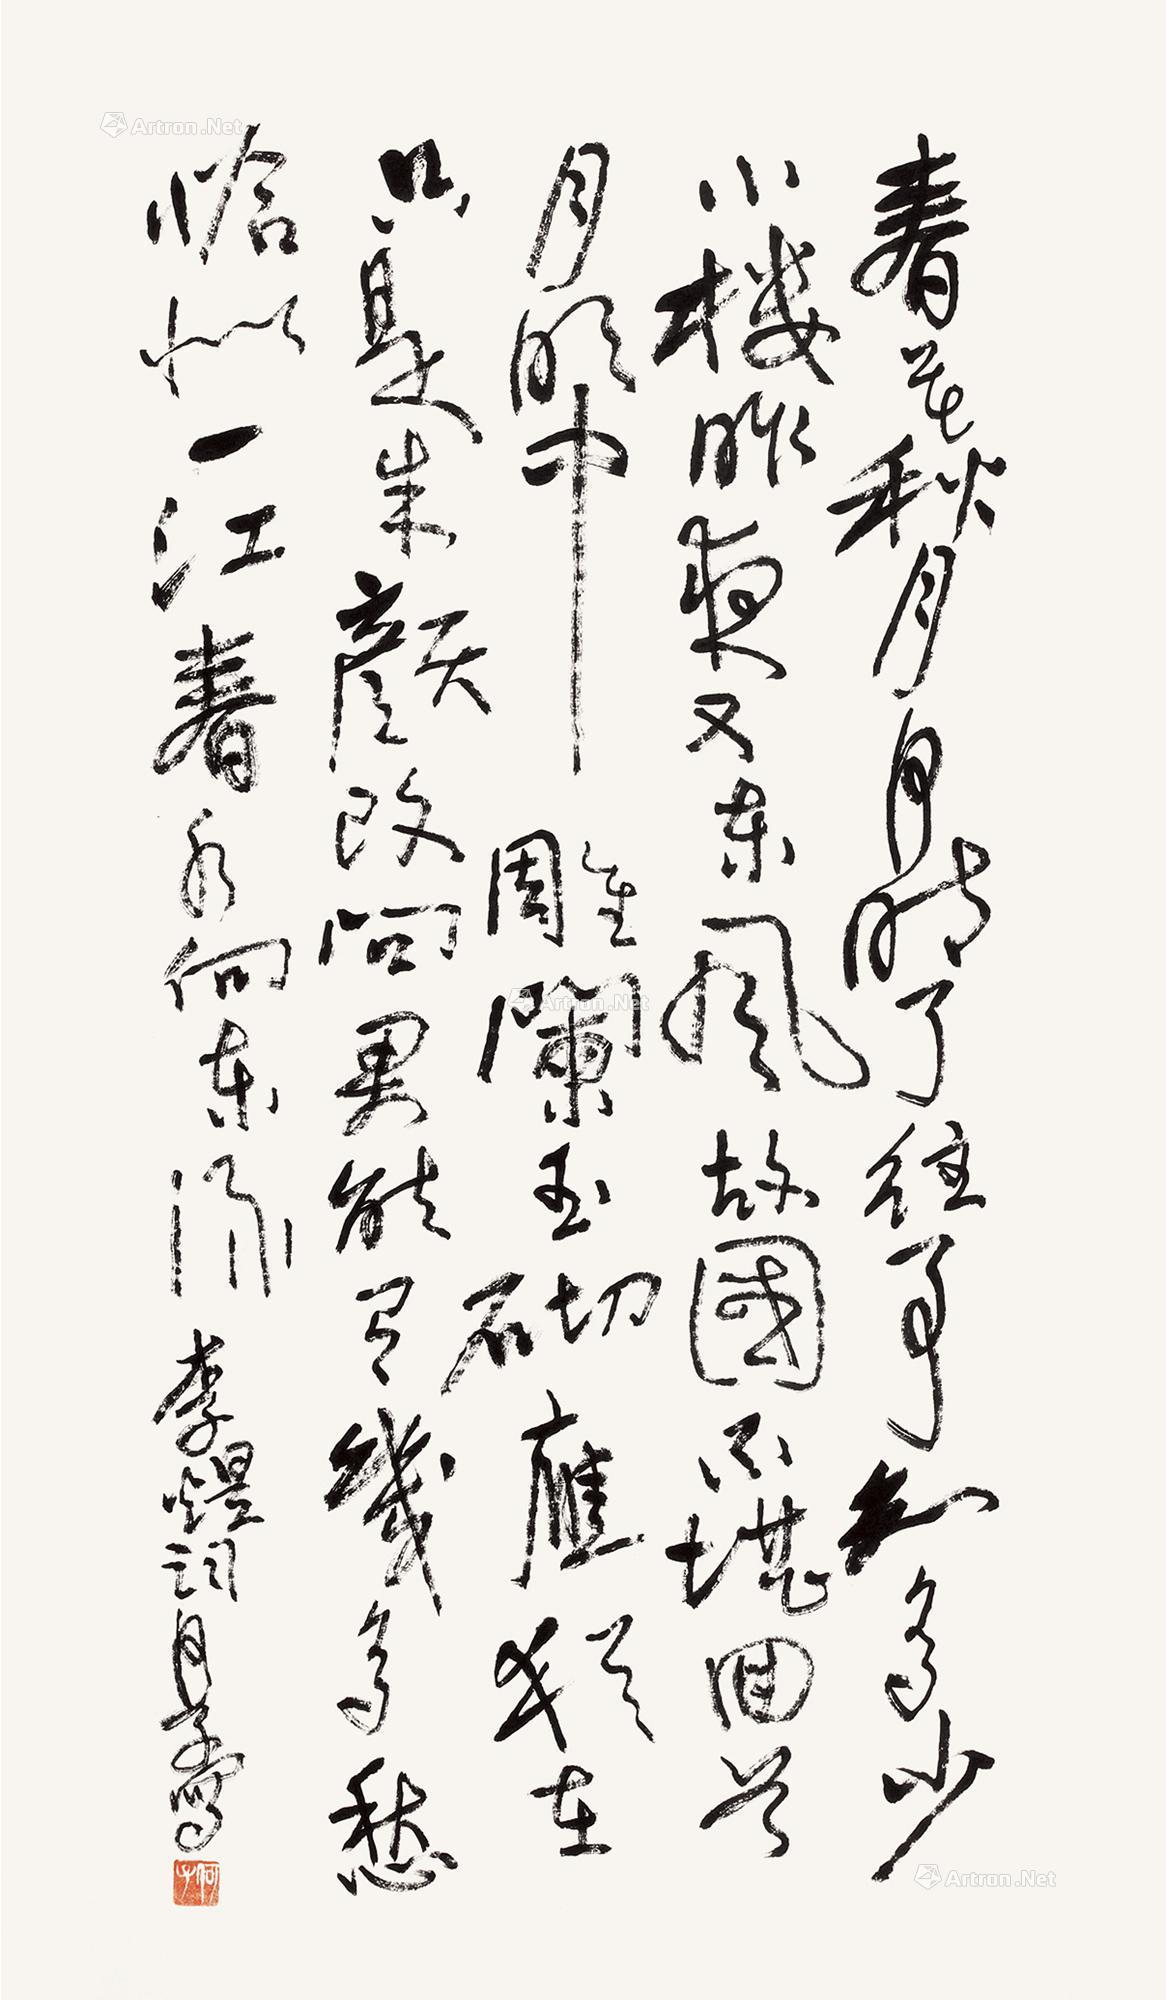 春花秋月何時了往事知多少
小樓昨夜又東風故國不堪回首
月明中雕闌玉砌應猶在
只是朱顏改問君能有幾多愁
恰似一江春水向東流 李煜詞何子寫
Artron.Net
Artron.Net
Artron.Net